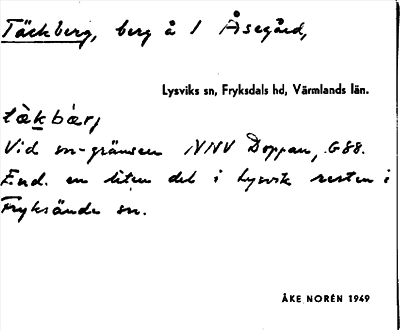 Täckberg, berg å 1 Åsegård,
Lysviks sn, Fryksdals hd, Värmlands län.
tàkbàrj
Vid sn-gränsen NNV Doppan, G88.
End. en liten del i Lysvik resten i
Fryksände sn.
ÅKE NORÉN 1949